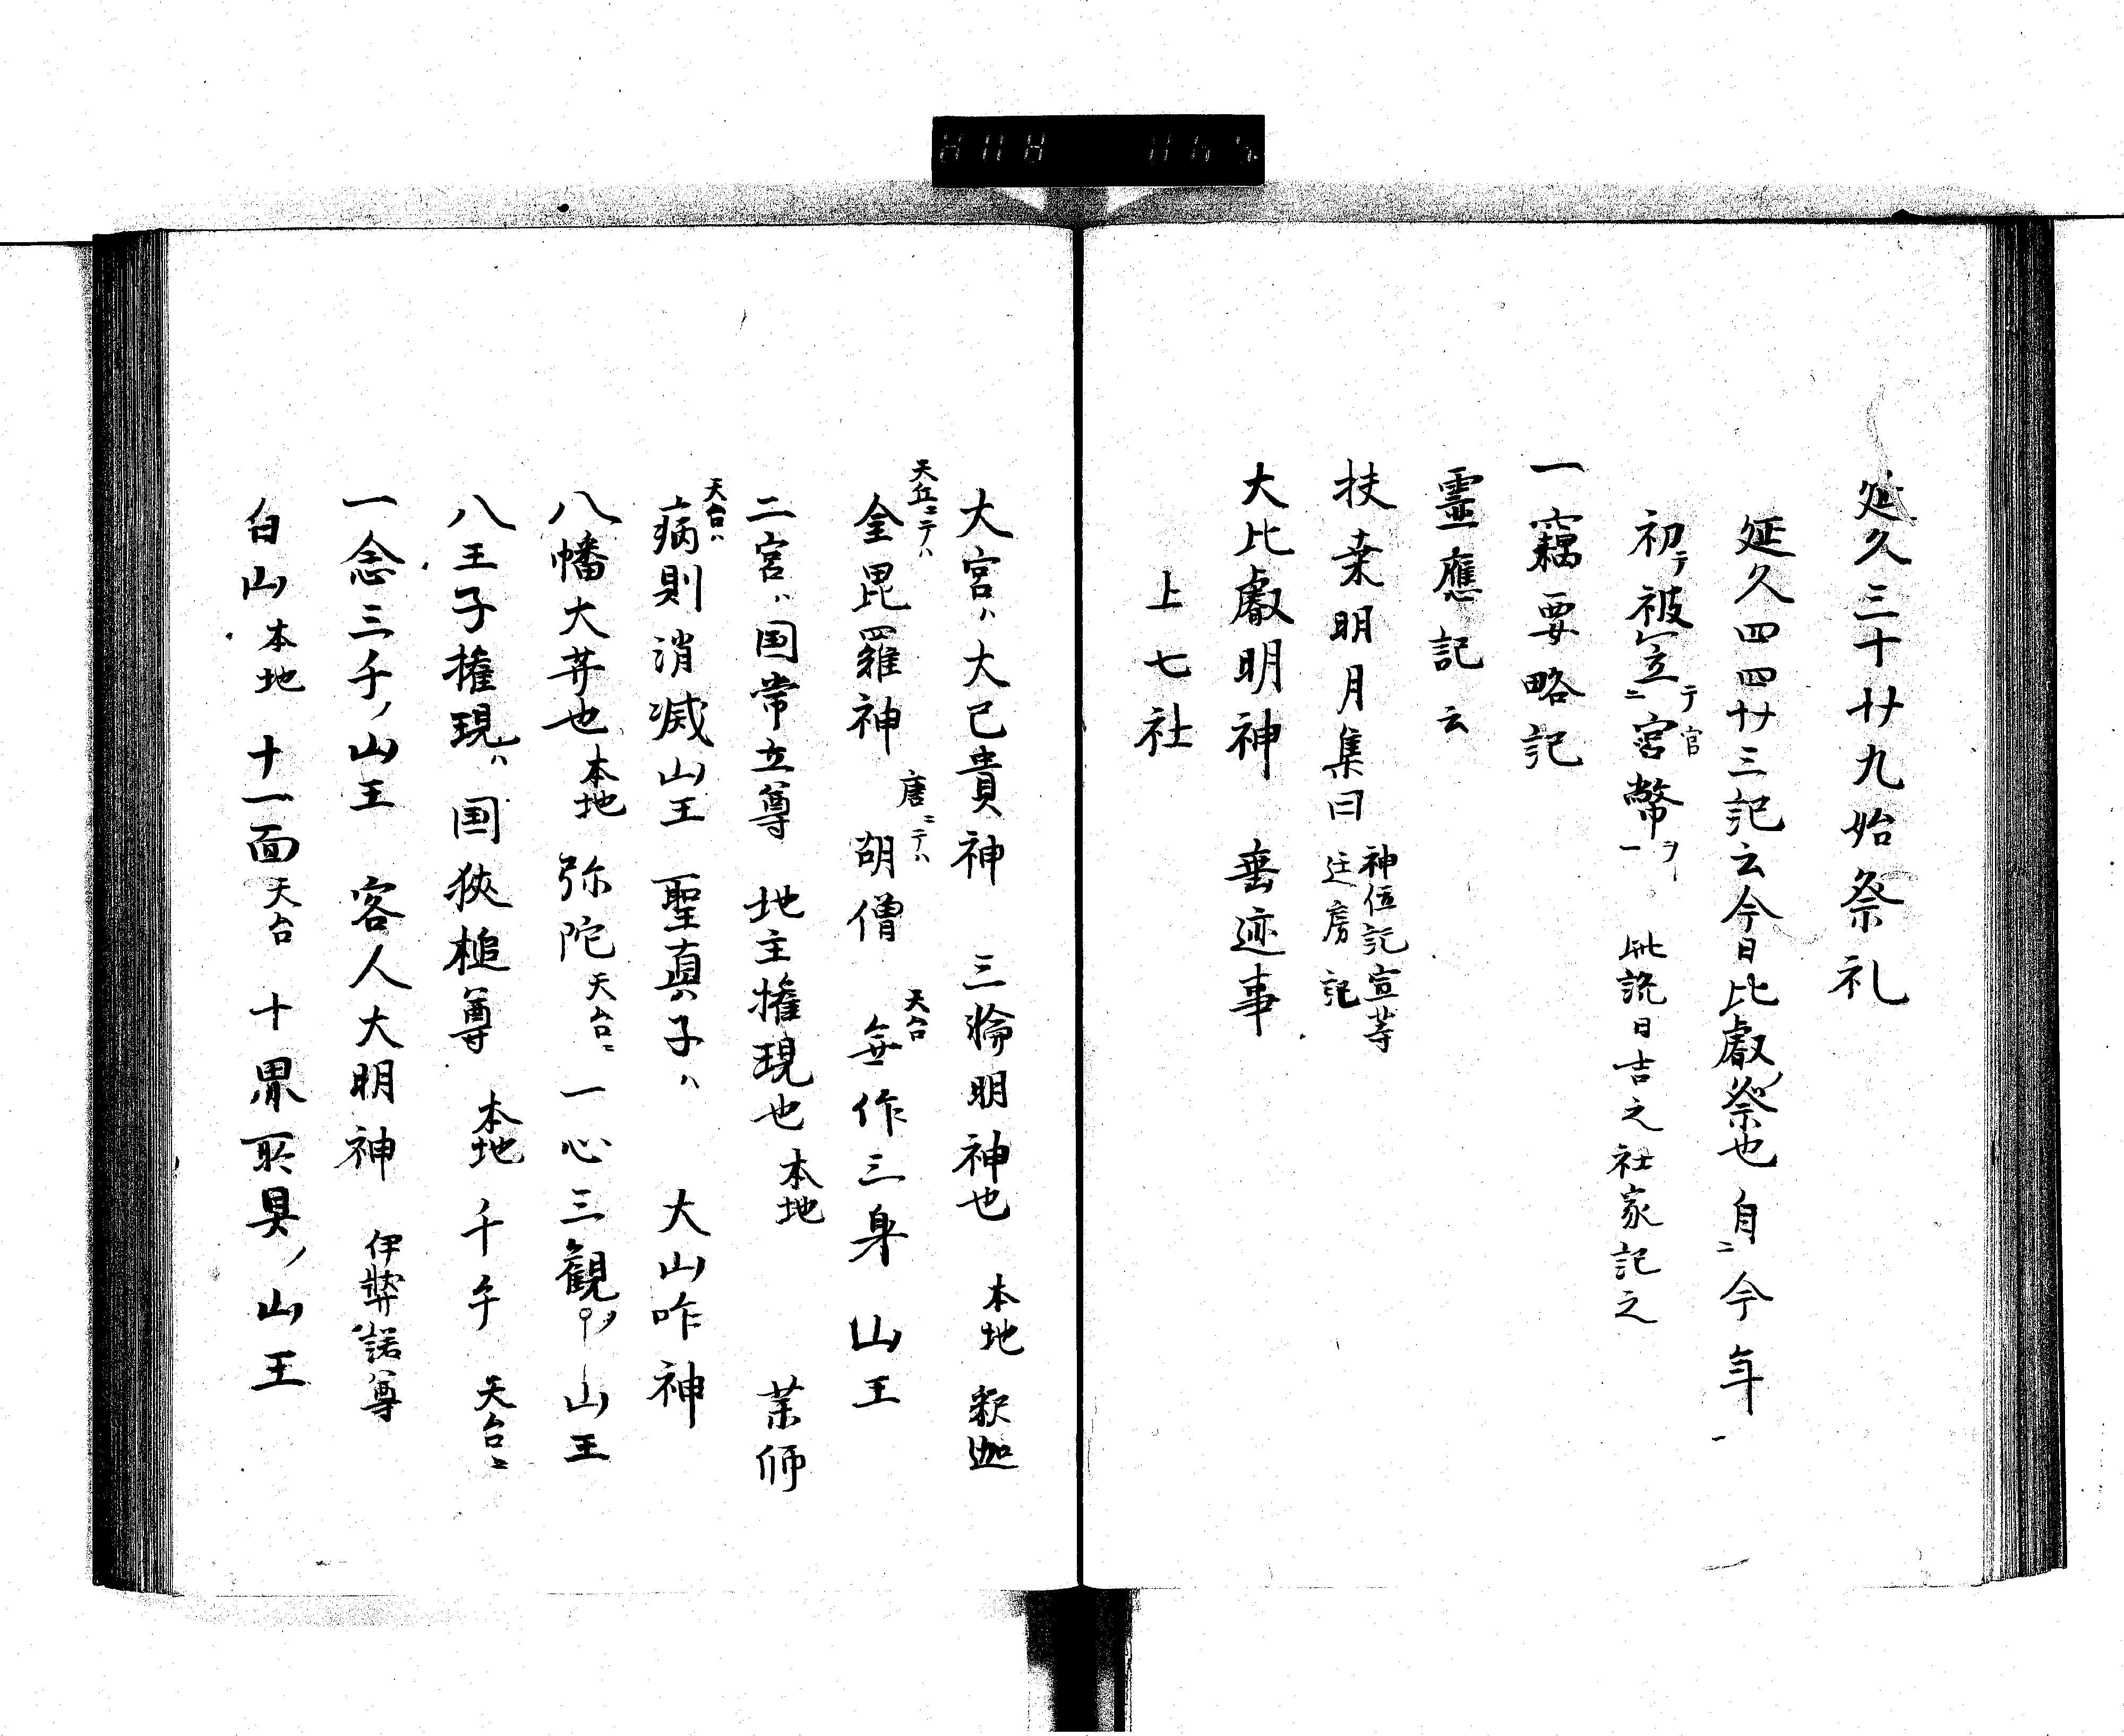 延久三十廿九始祭礼
延久四四廿三記云今日比叡ノ祭也自ニ今年一
初テ被立ニ宮幣ヲ一 此説日吉之社家記之
テ官
一竊要略記
霊應記云
扶桒明月集曰 神伍記宣等
匡房記
大比叡明神 垂迹事
上七社
大宮ハ大己貴神 三輪明神也 本地 釈迦
天丘ニテハ 唐ニテハ 天台
金毘羅神 胡僧 無作三身 山王
二宮ハ国常立尊 地主権現也 本地 薬師
天台ハ
病則消滅山王 聖真ハ子ハ 大山咋神
八幡大菩也 本地 弥陀 天台ニ 一心三観ノ 山王
八王子権現ハ国狭槌尊 本地 千手 天台ニ
一念三千ノ山王 客人大明神 伊弉諾尊
白山 本地 十一面 天台 十界所具ノ山王